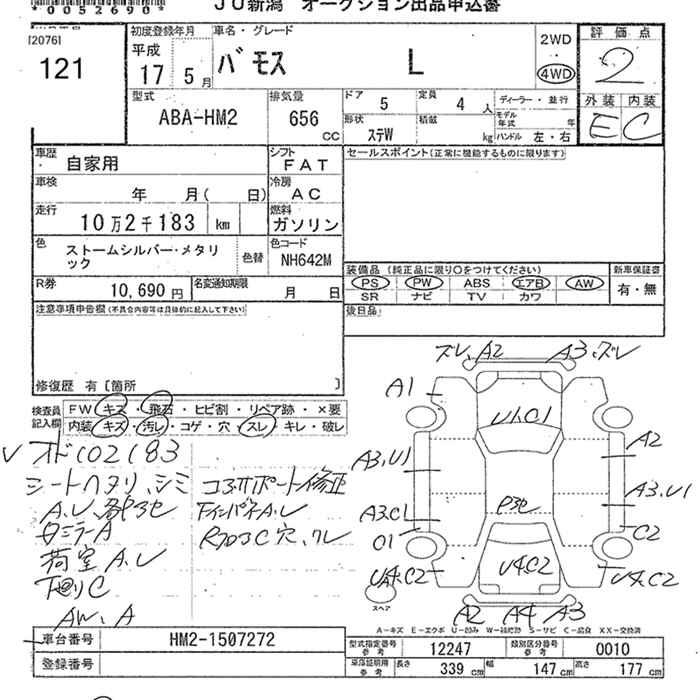 *0052690*
JU新潟 オークション出品申込書
120761
121
初度登録年月
平成
17 5月
車名・グレード
バモス L
2WD
4WD
評価点
2
型式
ABA-HM2
排気量
656 CC
ドア 5
定員 4 人
ディーラー・並行
形状 ステW
積載 kg
モデル年式 年
ハンドル 左・右
外装 内装
E C
車歴 自家用
シフト FAT
セールスポイント(正常に機能するものに限ります)
車検 年 月( 日)
冷房 AC
走行 10万2千183 km
燃料 ガソリン
色 ストームシルバー・メタリック
色替
色コード NH642M
装備品 (純正品に限り○をつけてください)
新車保証書
PS PW ABS エアB AW
有・無
SR ナビ TV カワ
R券 10,690円
名変通知期限 月 日
後日品
注意事項申告欄(不具合内容等は具体的に記入して下さい)
修復歴 有 [箇所 ]
検査員記入欄
FW キズ・飛石・ヒビ割・リペア跡・×要
内装 キズ・汚レ・コゲ・穴・スレ・キレ・破レ
オド102183
シートヘタリ、シミ
コアサポート修正
A.U、
ミラーA
荷室A.U
AW、A
ズレ、A2
A3、ズレ
A1
U1.C1
A2
A3.U1
A3.U1
A3.C1
C2
P3
U4.C2
U4.C2
スペア
A2 A4 A3
A-キズ E-エクボ U-凹み W-補修跡 S-サビ C-腐食 XX-交換済
車台番号 HM2-1507272
登録番号
型式指定番号 参考 12247
類別区分番号 参考 0010
車庫証明用 参考
長さ 339 cm
幅 147 cm
高さ 177 cm